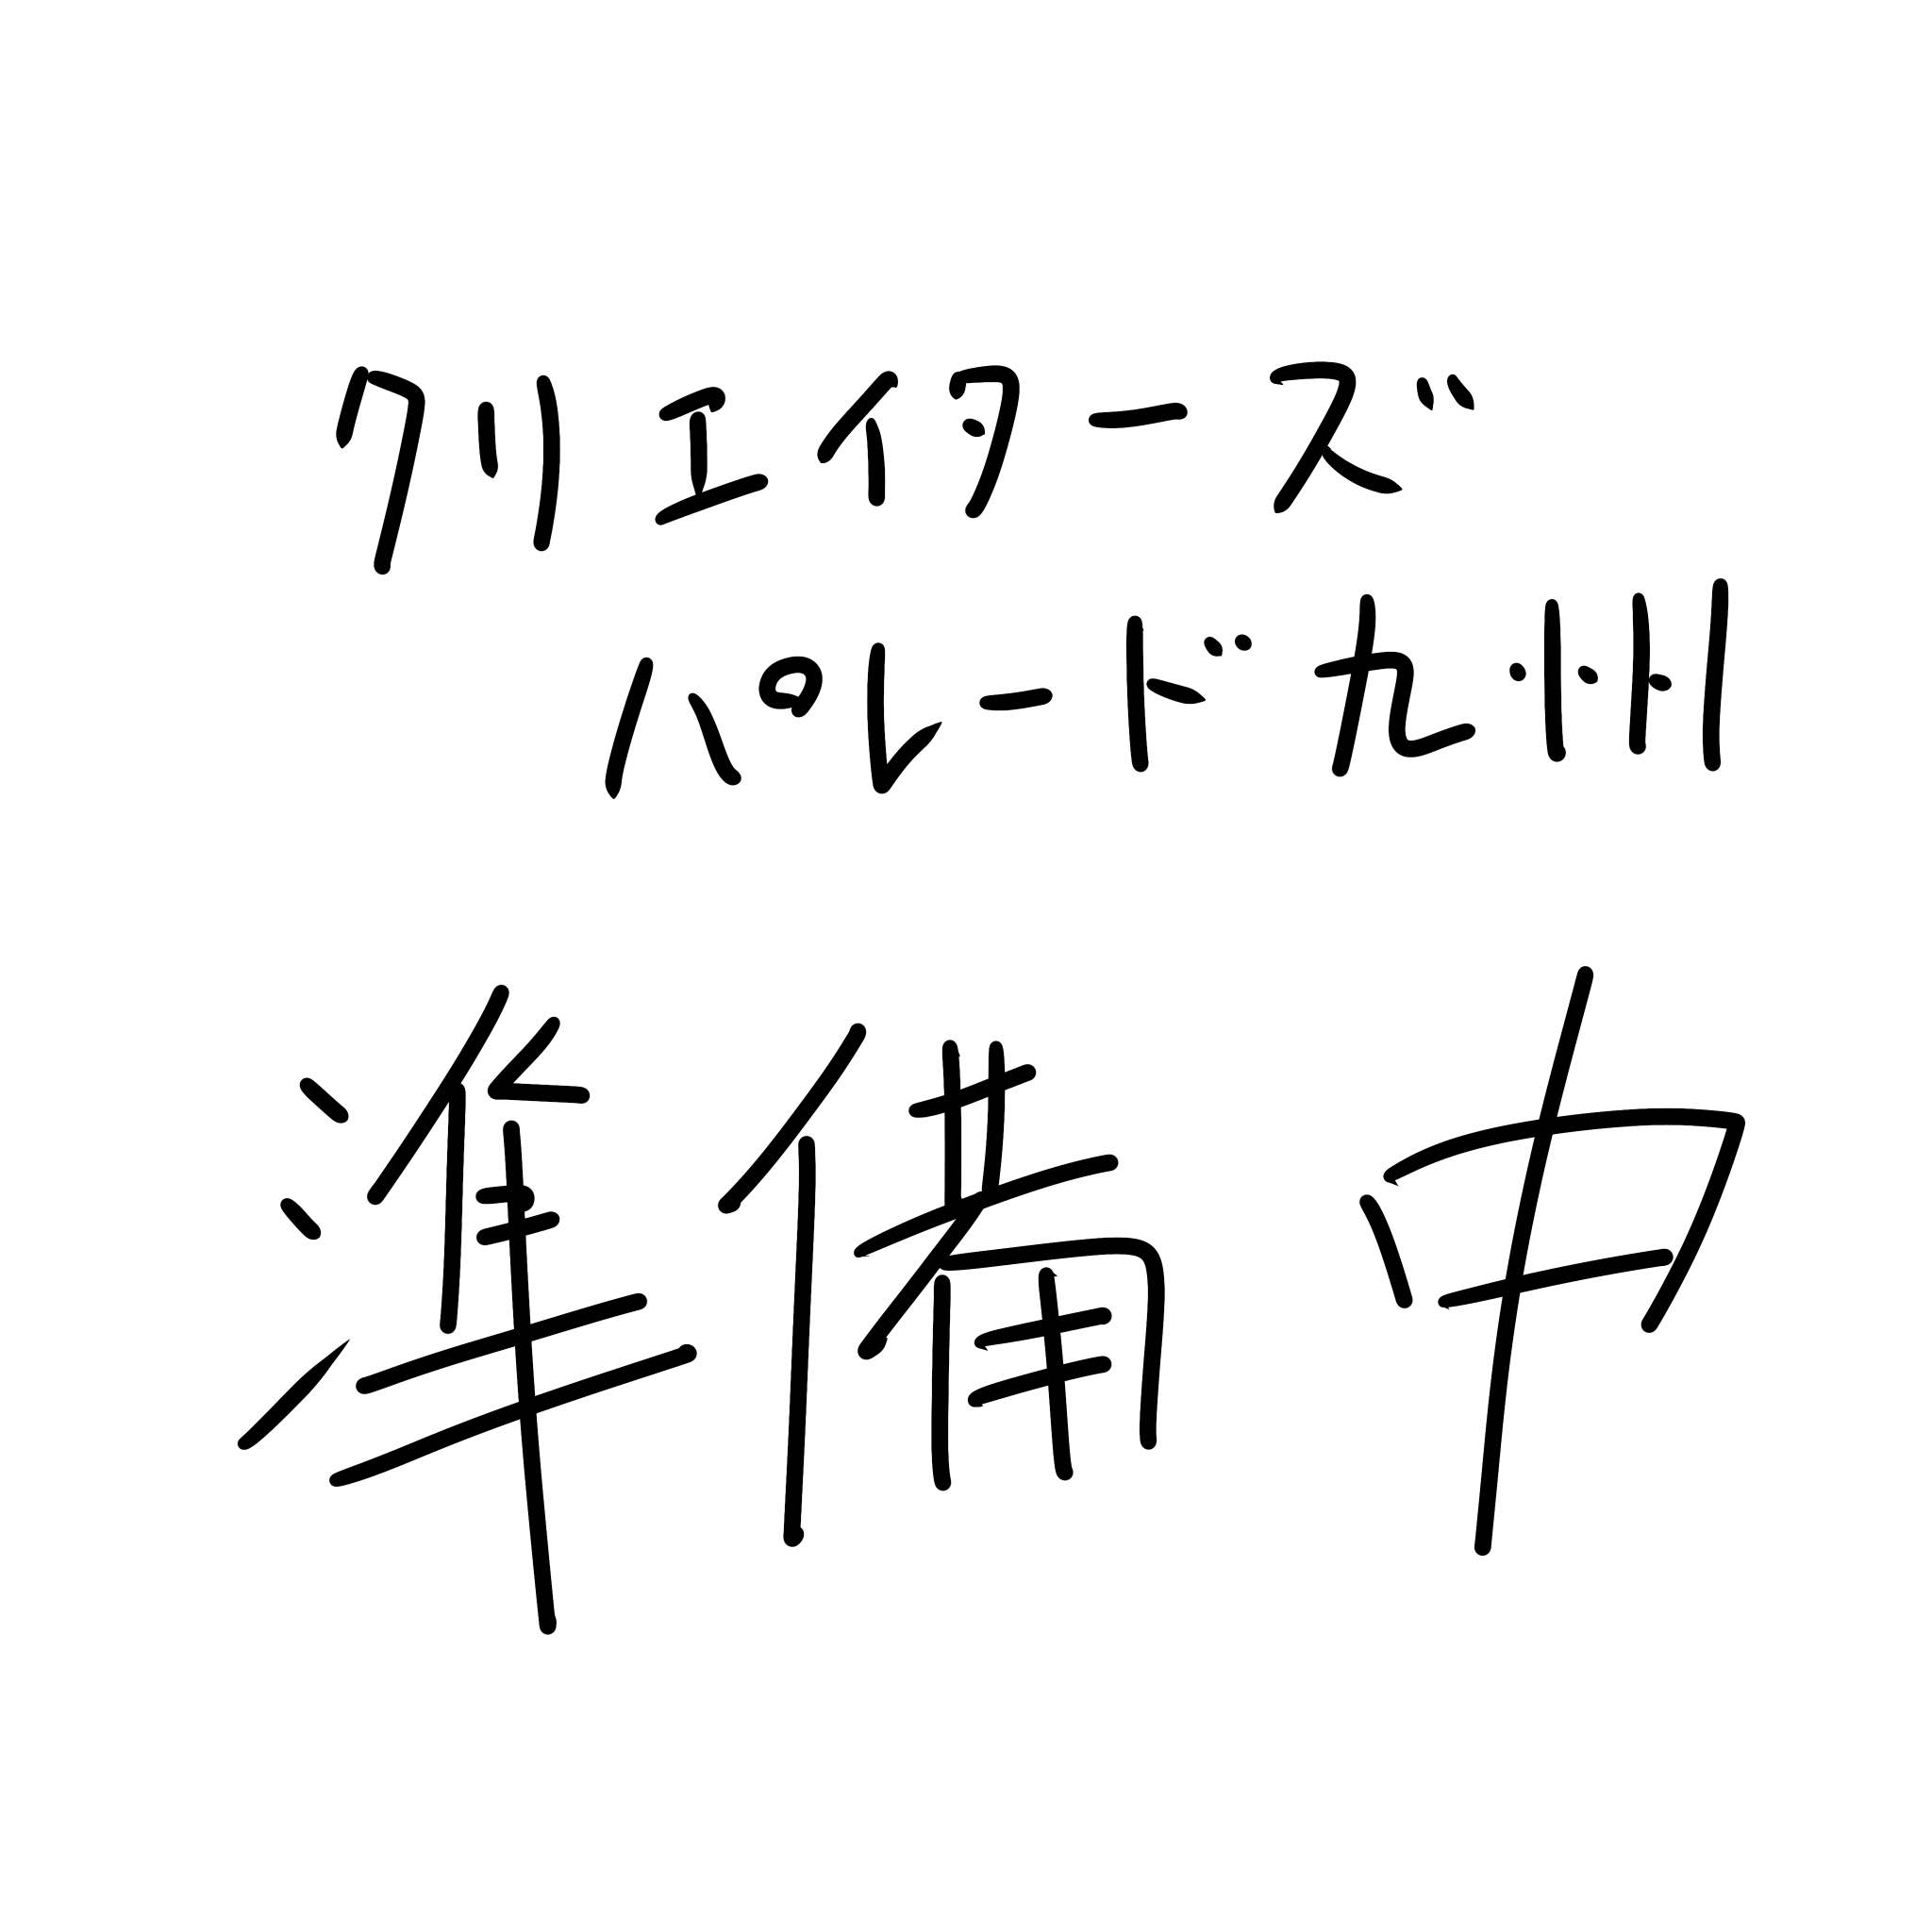 クリエイターズ
パレード九州
準備中